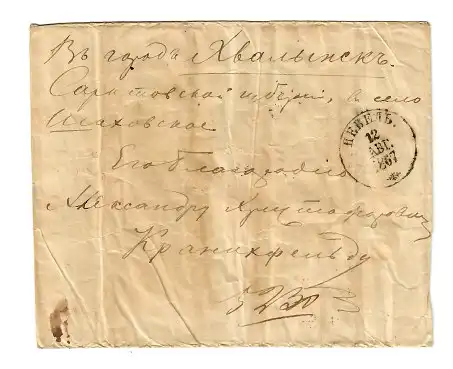 Въ городъ Хвалынскъ.
Саратовской губерніи, въ село
Исаковское
Его благородію
Александру Христофоровичу
Кранихфельду
НЕВЕЛЬ.
12
АВГ.
1867